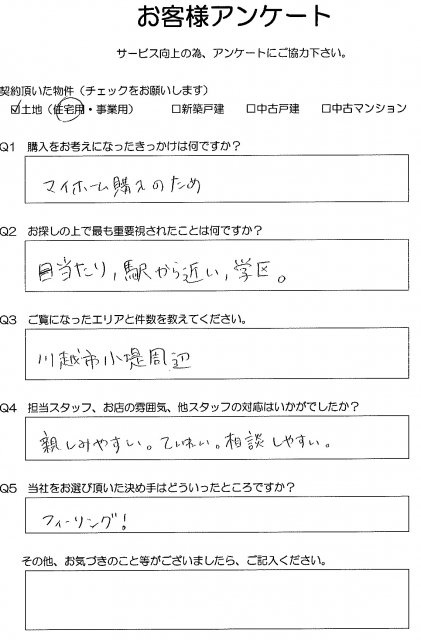 お客様アンケート
サービス向上の為、アンケートにご協力下さい。
契約頂いた物件（チェックをお願いします）
☑土地（住宅用・事業用） □新築戸建 □中古戸建 □中古マンション
Q1 購入をお考えになったきっかけは何ですか？
マイホーム購入のため
Q2 お探しの上で最も重要視されたことは何ですか？
日当たり，駅から近い，学区。
Q3 ご覧になったエリアと件数を教えてください。
川越市小堤周辺
Q4 担当スタッフ、お店の雰囲気、他スタッフの対応はいかがでしたか？
親しみやすい。ていねい。相談しやすい。
Q5 当社をお選び頂いた決め手はどういったところですか？
フィーリング！
その他、お気づきのこと等がございましたら、ご記入ください。